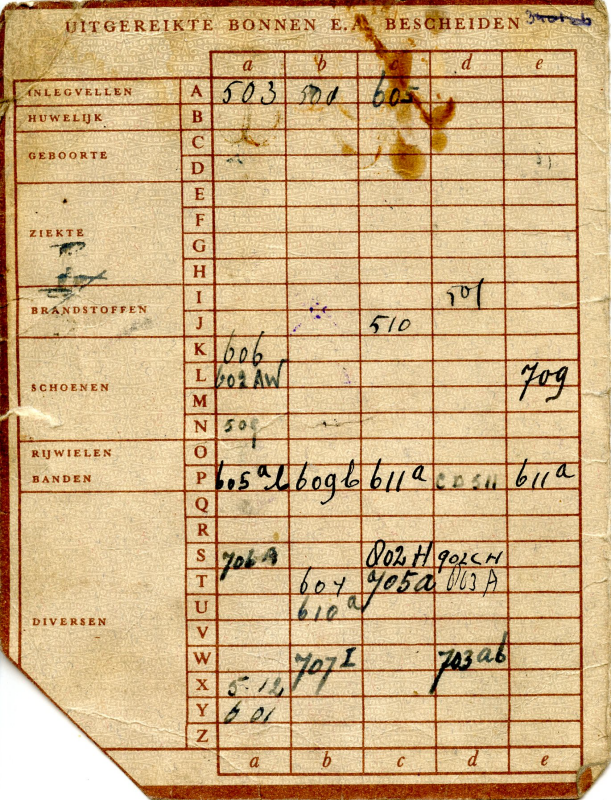 UITGEREIKTE BONNEN E.A. BESCHEIDEN
a b c d e
INLEGVELLEN A 503 501 605
HUWELIJK B
C
GEBOORTE
D
E
F
ZIEKTE
G
H
I 501
BRANDSTOFFEN
J 510
K 606
SCHOENEN L 602 AW 709
M
N 509
RIJWIELEN O
BANDEN P 605 a b 609 b 611 a CD 511 611 a
Q
R
S 706 A 802 H 902 CH
T 604 705a 803 A
U 610 a
DIVERSEN
V
W 707 I 703 ab
X 5 12
Y 601
Z
a b c d e